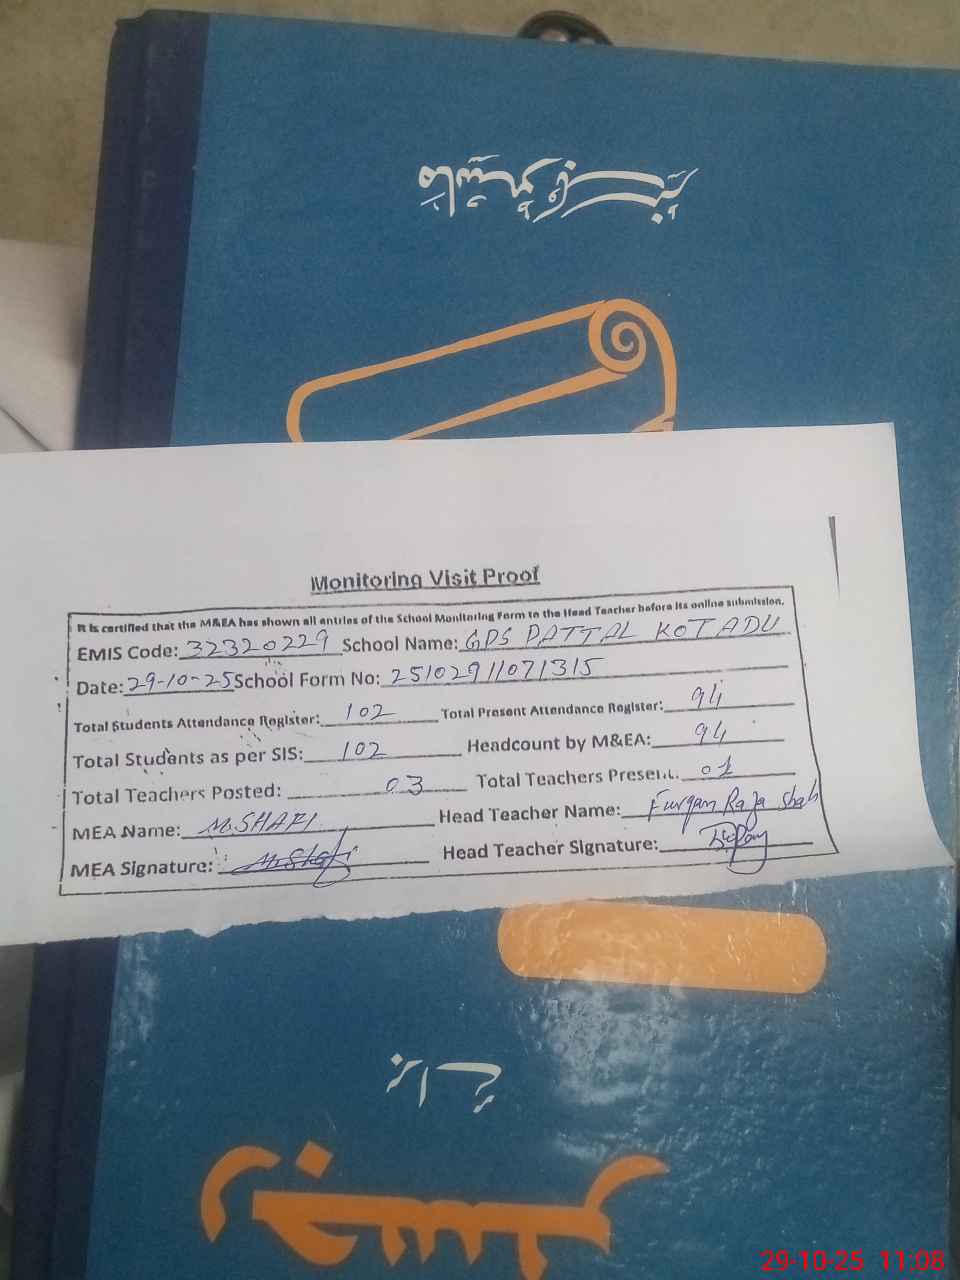 Monitoring Visit Proof
It is certified that the M&EA has shown all entries of the School Monitoring Form to the Head Teacher before its online submission.
EMIS Code: 32320229 School Name: GPS PATTAL KOT ADU
Date: 29-10-25 School Form No: 25102911071315
Total Students Attendance Register: 102 Total Present Attendance Register: 94
Total Students as per SIS: 102 Headcount by M&EA: 94
Total Teachers Posted: 03 Total Teachers Present:
MEA Name: M.SHAFI Head Teacher Name: Furqan Raza Shah
MEA Signature: M.Shafi Head Teacher Signature:
29-10-25 11:08